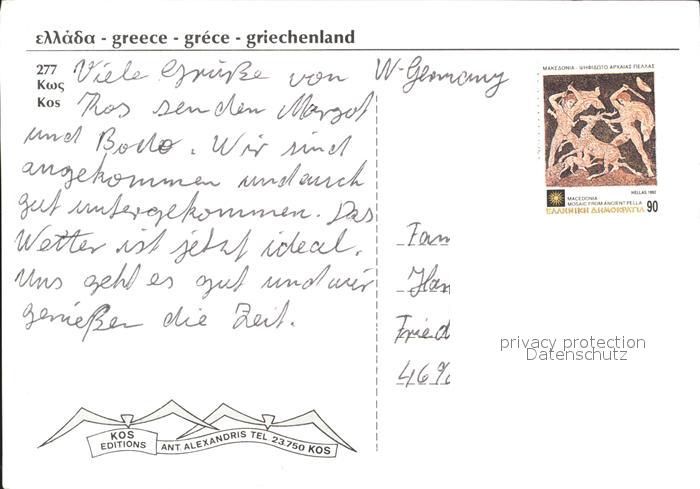 ελλάδα - greece - gréce - griechenland
277
Κως
Kos
Viele Grüße von
Kos senden Margot
und Bodo. Wir sind
angekommen und auch
gut untergekommen. Das
Wetter ist jetzt ideal.
Uns geht es gut und wir
genießen die Zeit.
W-Germany
ΜΑΚΕΔΟΝΙΑ - ΨΗΦΙΔΩΤΟ ΑΡΧΑΙΑΣ ΠΕΛΛΑΣ
HELLAS 1992
MACEDONIA
MOSAIC FROM ANCIENT PELLA
ΕΛΛΗΝΙΚΗ ΔΗΜΟΚΡΑΤΙΑ 90
Fam
Han
Fried
46
privacy protection
Datenschutz
KOS
EDITIONS
ANT. ALEXANDRIS TEL 23.750 KOS